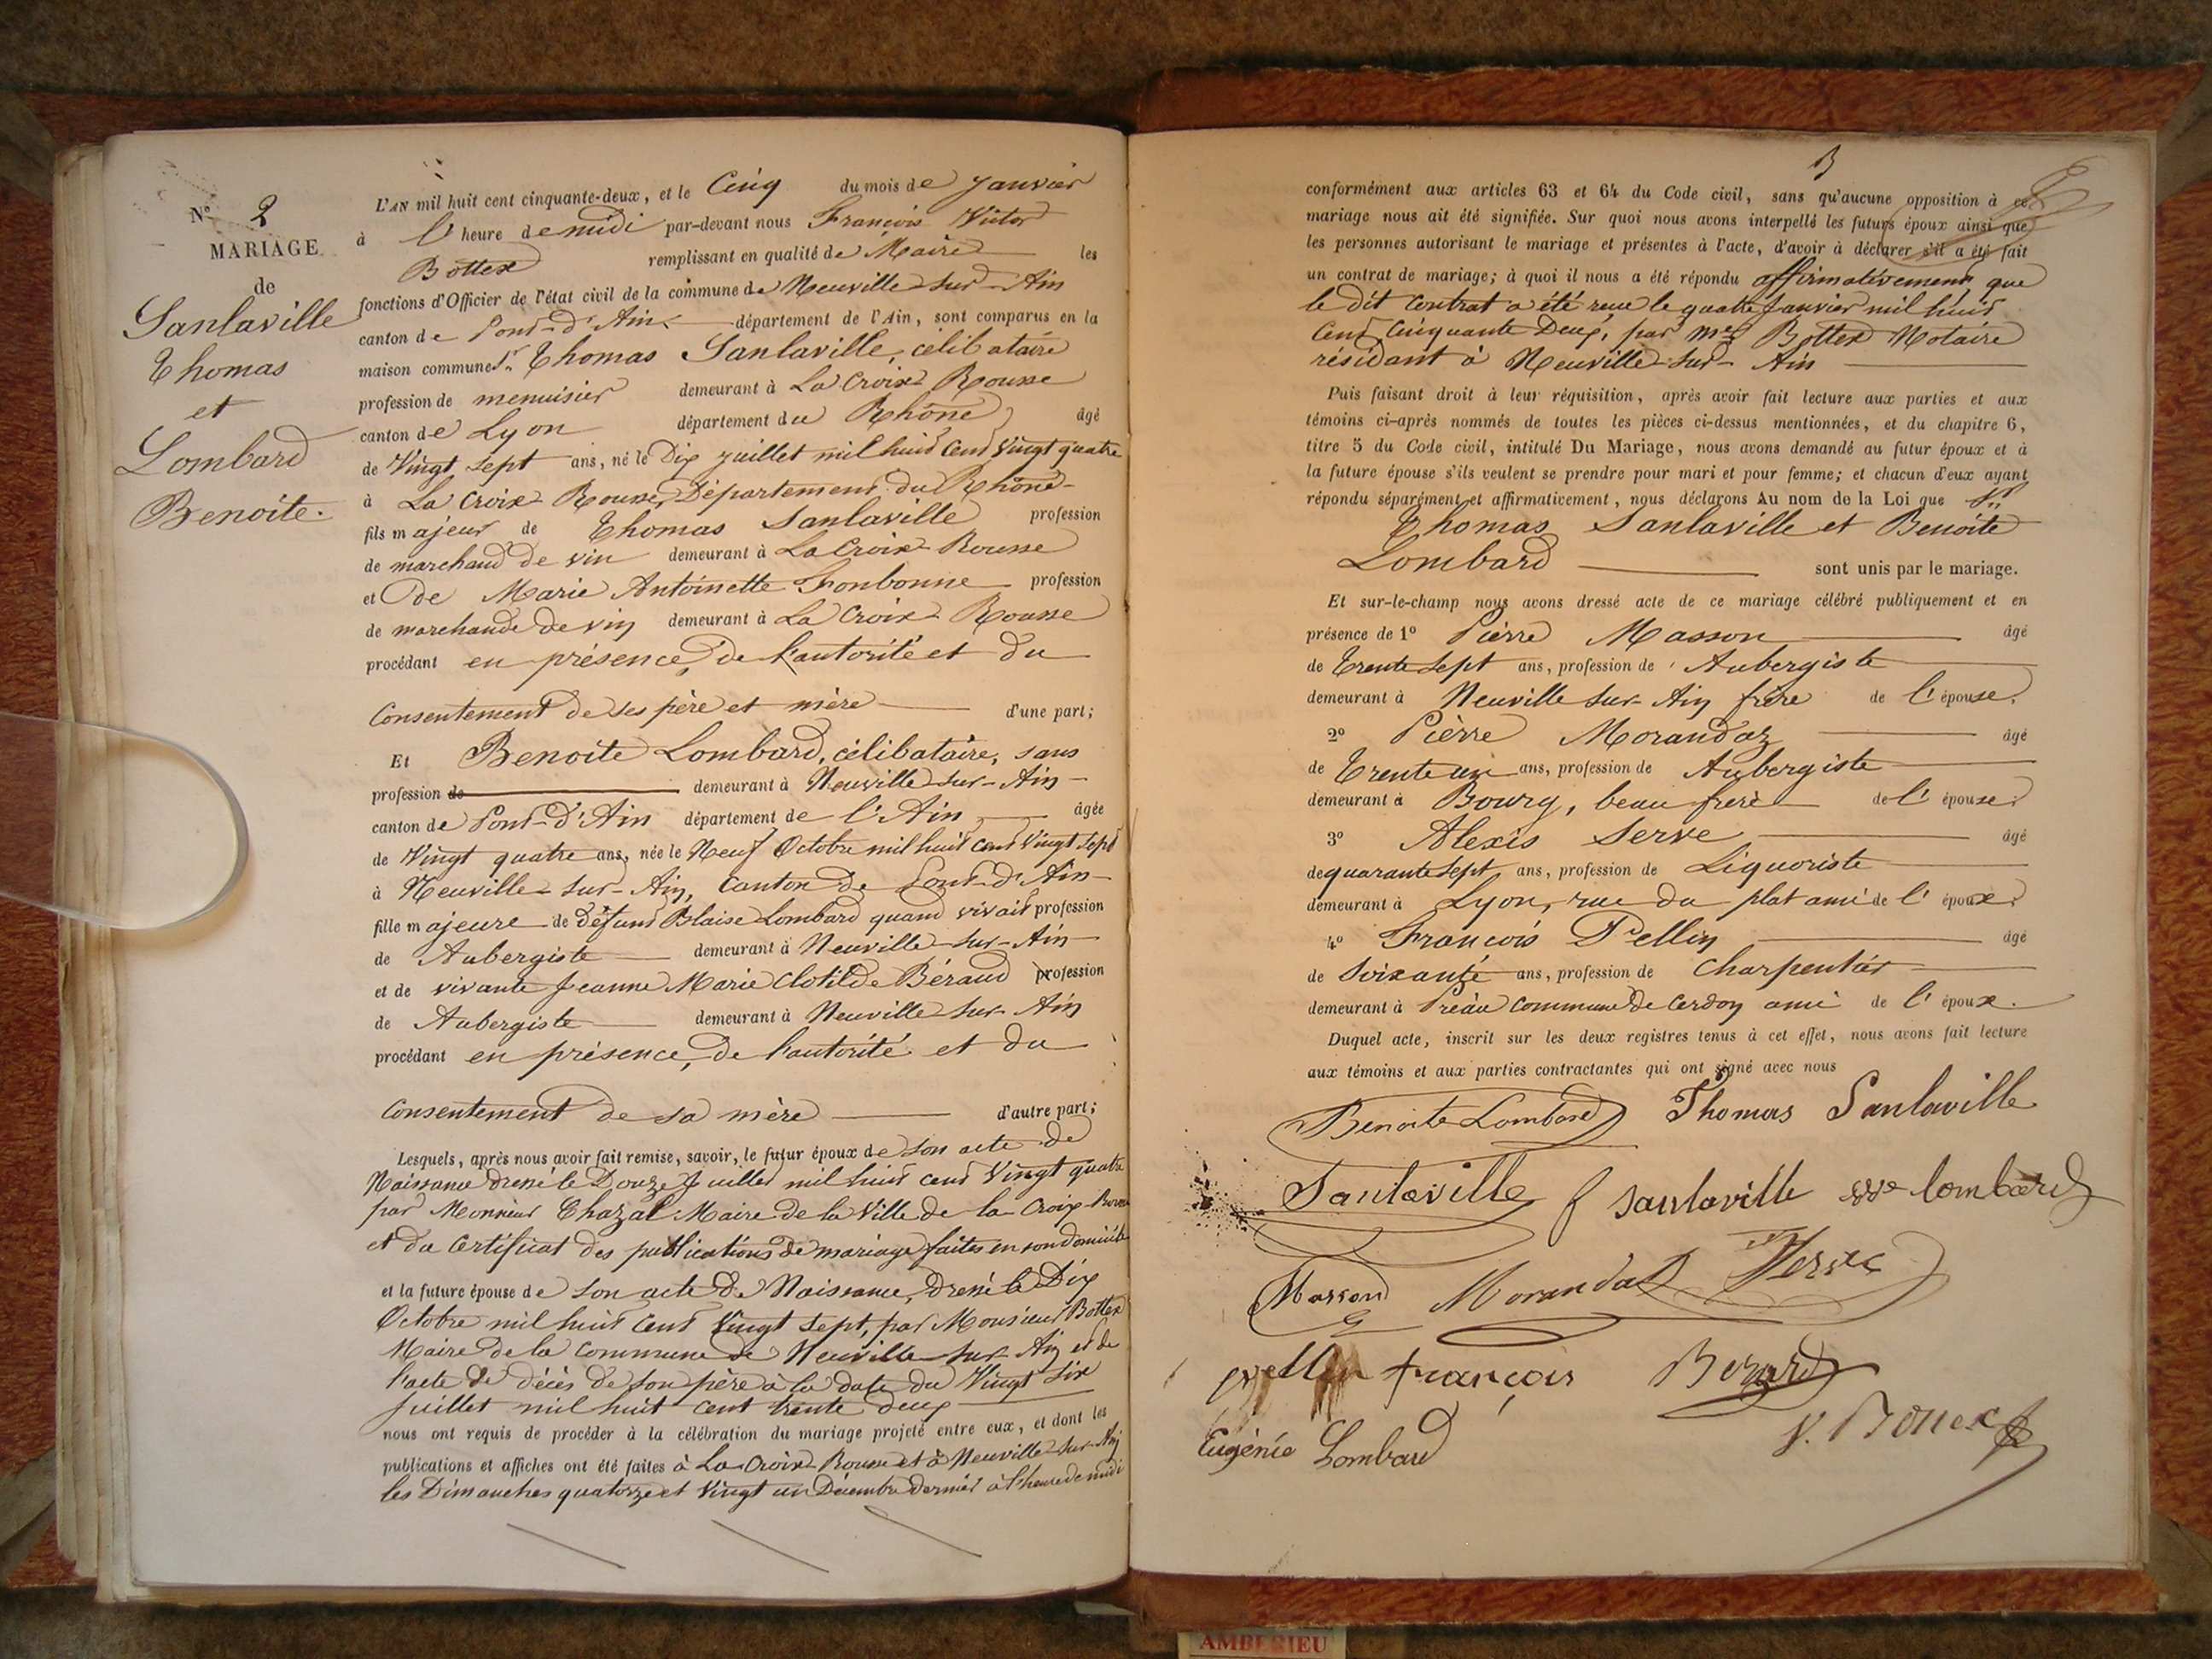 Nº 2
MARIAGE
de
Sanlaville
Thomas
et
Lombard
Benoite.
L'AN mil huit cent cinquante-deux, et le Cinq du mois de Janvier
à l'heure de midi par-devant nous François Victor
Bottex remplissant en qualité de Maire les
fonctions d'Officier de l'état civil de la commune de Neuville sur Ain
canton de Pont-d'Ain département de l'Ain, sont comparus en la
maison commune Sr. Thomas Sanlaville, célibataire
profession de menuisier demeurant à La Croix Rousse
canton de Lyon département du Rhône âgé
de Vingt sept ans, né le Dix juillet mil huit cent vingt quatre
à La Croix Rousse, Département du Rhône
fils majeur de Thomas Sanlaville profession
de marchand de vin demeurant à La Croix Rousse
et de Marie Antoinette Fonbonne profession
de marchande de vin demeurant à La Croix Rousse
procédant en présence, de l'autorité et du
Consentement de ses père et mère d'une part;
Et Benoite Lombard, célibataire, sans
profession de demeurant à Neuville sur-Ain
canton de Pont-d'Ain département de l'Ain âgée
de Vingt quatre ans, née le Neuf Octobre mil huit cent vingt sept
à Neuville-sur-Ain, Canton de Pont-d'Ain
fille majeure de défunt Blaise Lombard quand vivait profession
de Aubergiste demeurant à Neuville-sur-Ain
et de vivante Jeanne Marie Clotilde Béraud profession
de Aubergiste demeurant à Neuville sur Ain
procédant en présence, de l'autorité et du
Consentement de sa mère d'autre part;
Lesquels, après nous avoir fait remise, savoir, le futur époux de son acte de
Naissance dressé le Douze Juillet mil huit cent vingt quatre
par Monsieur Chazal Maire de la Ville de la Croix-Rousse
et du Certificat des publications de mariage faites en son domicile
et la future épouse de son acte de Naissance, dressé le Dix
Octobre mil huit cent vingt sept, par Monsieur Bottex
Maire de la Commune de Neuville sur Ain et de
l'acte de décès de son père à la date du Vingt six
Juillet mil huit cent trente deux
nous ont requis de procéder à la célébration du mariage projeté entre eux, et dont les
publications et affiches ont été faites à La Croix Rousse et à Neuville sur Ain
les Dimanches quatorze et vingt un Décembre dernier à l'heure de midi
3
conformément aux articles 63 et 64 du Code civil, sans qu'aucune opposition à ce
mariage nous ait été signifiée. Sur quoi nous avons interpellé les futurs époux ainsi que
les personnes autorisant le mariage et présentes à l'acte, d'avoir à déclarer s'il a été fait
un contrat de mariage; à quoi il nous a été répondu affirmativement que
le dit contrat a été reçu le quatre Janvier mil huit
cent cinquante Deux, par Me Bottex Notaire
résidant à Neuville-sur-Ain
Puis faisant droit à leur réquisition, après avoir fait lecture aux parties et aux
témoins ci-après nommés de toutes les pièces ci-dessus mentionnées, et du chapitre 6,
titre 5 du Code civil, intitulé Du Mariage, nous avons demandé au futur époux et à
la future épouse s'ils veulent se prendre pour mari et pour femme; et chacun d'eux ayant
répondu séparément et affirmativement, nous déclarons Au nom de la Loi que Sr.
Thomas Sanlaville et Benoite
Lombard sont unis par le mariage.
Et sur-le-champ nous avons dressé acte de ce mariage célébré publiquement et en
présence de 1º Pierre Masson âgé
de Trente sept ans, profession de Aubergiste
demeurant à Neuville sur-Ain frère de l'épouse.
2º Pierre Morandaz âgé
de Trente un ans, profession de Aubergiste
demeurant à Bourg, beau frère de l'épouse.
3º Alexis Serve âgé
de quarante sept ans, profession de Liquoriste
demeurant à Lyon, rue du plat ami de l'époux.
4º François Pellin âgé
de Soixante ans, profession de Charpentier
demeurant à Préau Commune de Cerdon ami de l'époux.
Duquel acte, inscrit sur les deux registres tenus à cet effet, nous avons fait lecture
aux témoins et aux parties contractantes qui ont signé avec nous
Benoite Lombard Thomas Sanlaville
Sanlaville f sanlaville lombard
Masson Morandaz Serve
pellin françois Berard
Eugénie Lombard V. Bottex
AMBERIEU